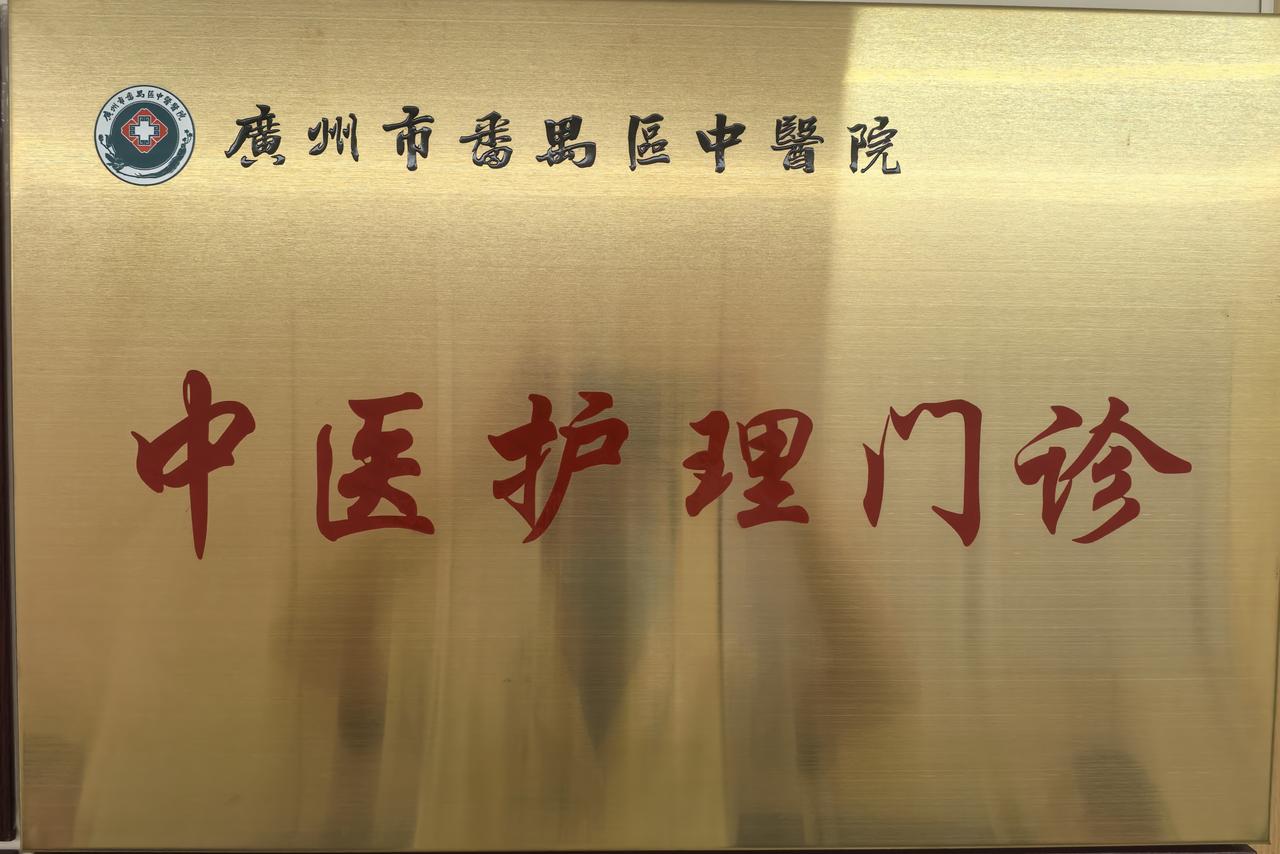 廣州市番禺區中醫醫院
廣州市番禺區中醫院
中医护理门诊